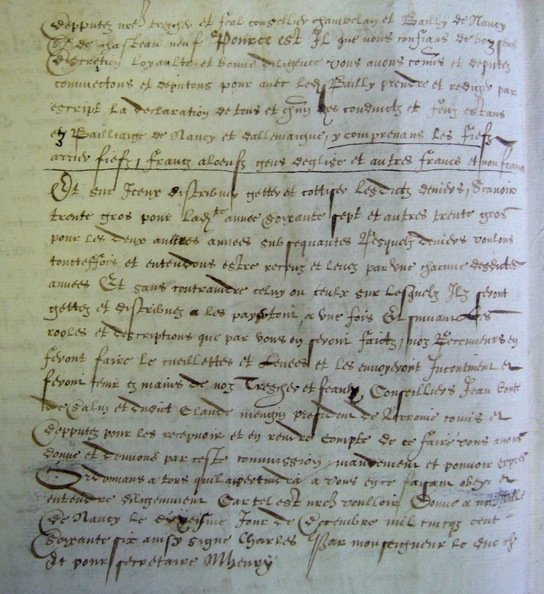 depputez nre treschier et feal conseillier chambelan et Bailly de Nancy
et de chasteau neuf Pource est Il que nous confians de voz sens
discretion loyaulte et bonne diligence vous avons comis et deputez
commectons et deputons pour avec led Bailly prendre et rediger par
escript la declaration de tous et les conduictz et estans
ez Bailliaige de Nancy et dallemaigne, y comprenans les fiefz
arrier fiefz, francz aloeufz gens deglise et autres francs et non francs
Et sur Iceux distribuer getter et cottiser lesdictz deniers, Scavoir
trente gros pour lad annee soixante sept et autres trente gros
pour les deux aultres annees subsequantes Lesquelz deniers voulons
touteffois et entendons estre receuz et levez par une chacune desdictes
annees Et sans contraindre celuy ou ceulx sur lesquelz Ilz seront
gettez et distribuez a les pay tout a une fois Et suivant les
rooles et descriptions que par vous en seront faictz, noz Receveurs en
feront faire le cueillettes et Levees et les envoyeront Incontinent et
feront tenir ez mains de noz Treschiers et feaulx Conseilliers Jean Conte
de Salm et Claude mengin president de Lorraine comis et
depputez pour les recepvoir et en rendre compte de ce faire vous avons
donne et donnons par ceste commission, mandement et pouvoir expres
Ordonnans a tous quil apertindra a vous en ce faisant obeyr et
entendre diligemment Car tel est nre voulloir Donne a nre ville
de Nancy le Jour de Decembre mil cincq cent
Soixante six ainsy signe Charles Par monseigneur le duc
Et pour secretaire MHenry